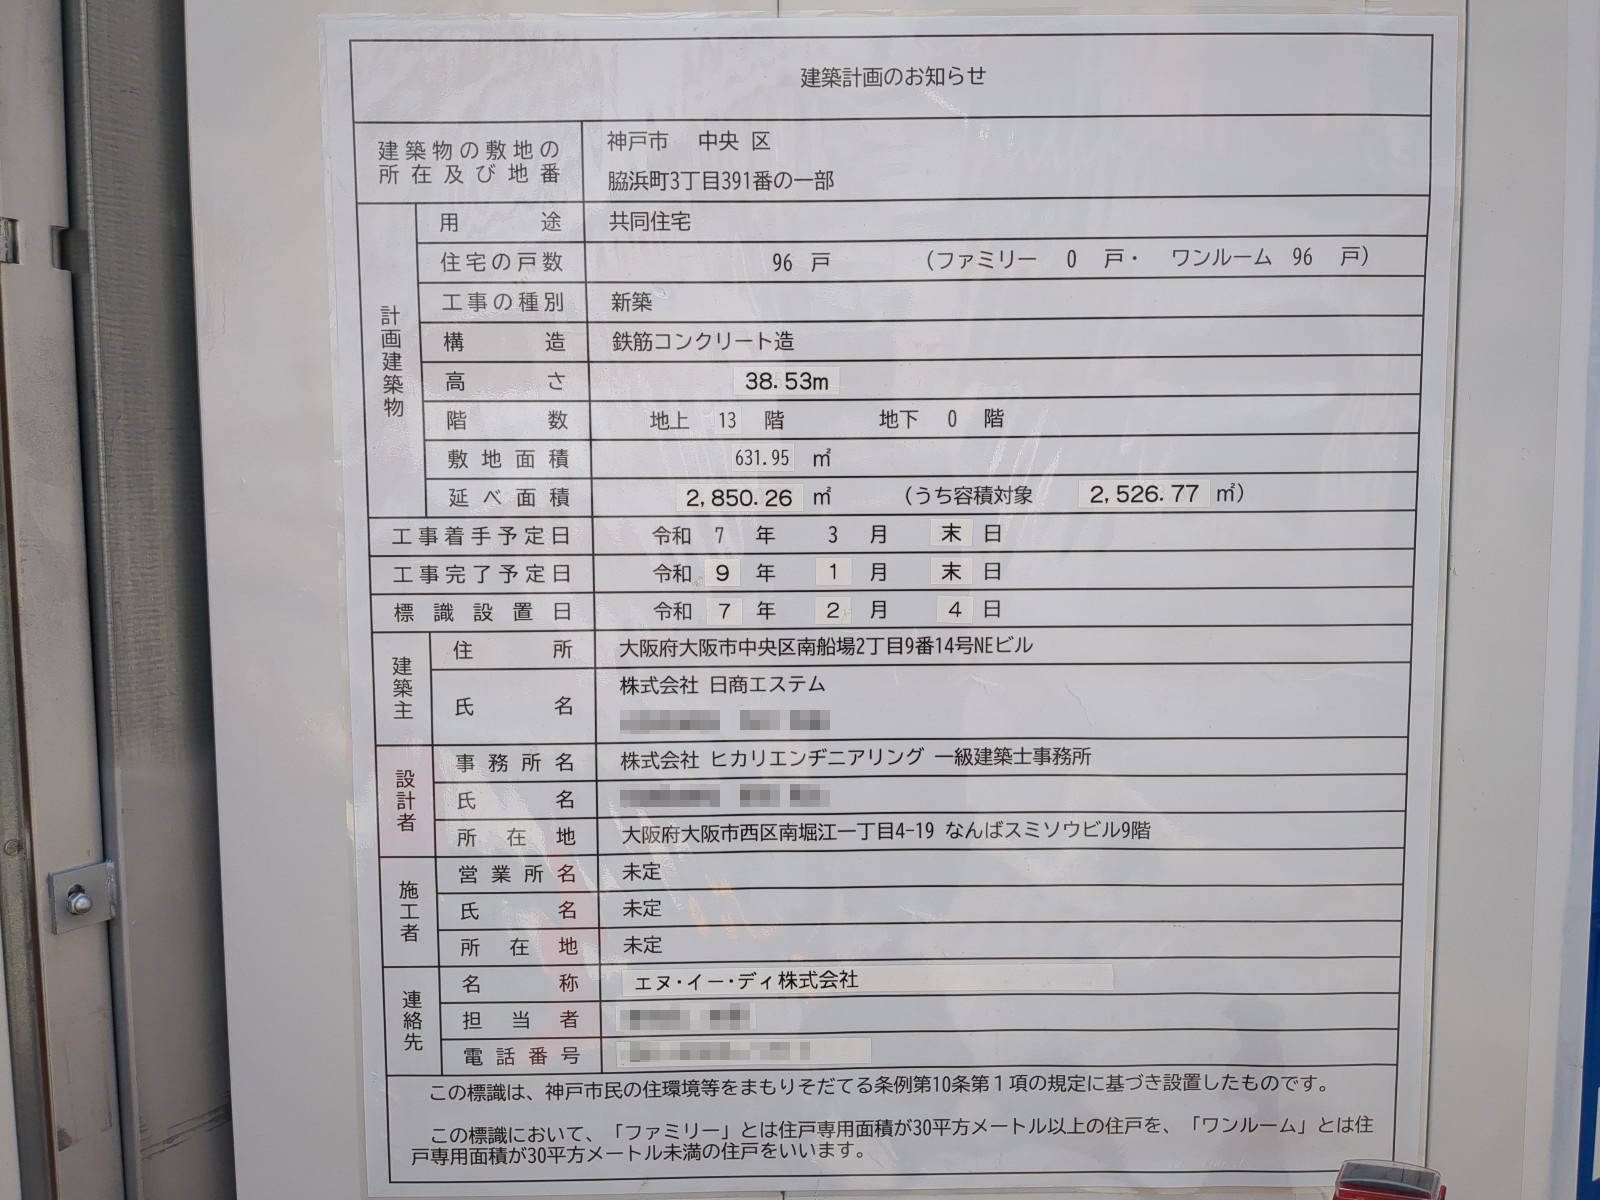 建築計画のお知らせ
建築物の敷地の所在及び地番
神戸市 中央 区
脇浜町3丁目391番の一部
計画建築物
用途 共同住宅
住宅の戸数 96 戸 （ファミリー 0 戸・ ワンルーム 96 戸）
工事の種別 新築
構造 鉄筋コンクリート造
高さ 38.53m
階数 地上 13 階 地下 0 階
敷地面積 631.95 ㎡
延べ面積 2,850.26 ㎡ （うち容積対象 2,526.77 ㎡）
工事着手予定日 令和 7 年 3 月 末 日
工事完了予定日 令和 9 年 1 月 末 日
標識設置日 令和 7 年 2 月 4 日
建築主
住所 大阪府大阪市中央区南船場2丁目9番14号NEビル
氏名 株式会社 日商エステム
設計者
事務所名 株式会社 ヒカリエンヂニアリング 一級建築士事務所
氏名
所在地 大阪府大阪市西区南堀江一丁目4-19 なんばスミソウビル9階
施工者
営業所名 未定
氏名 未定
所在地 未定
連絡先
名称 エヌ・イー・ディ株式会社
担当者
電話番号
この標識は、神戸市民の住環境等をまもりそだてる条例第10条第１項の規定に基づき設置したものです。
この標識において、「ファミリー」とは住戸専用面積が30平方メートル以上の住戸を、「ワンルーム」とは住
戸専用面積が30平方メートル未満の住戸をいいます。